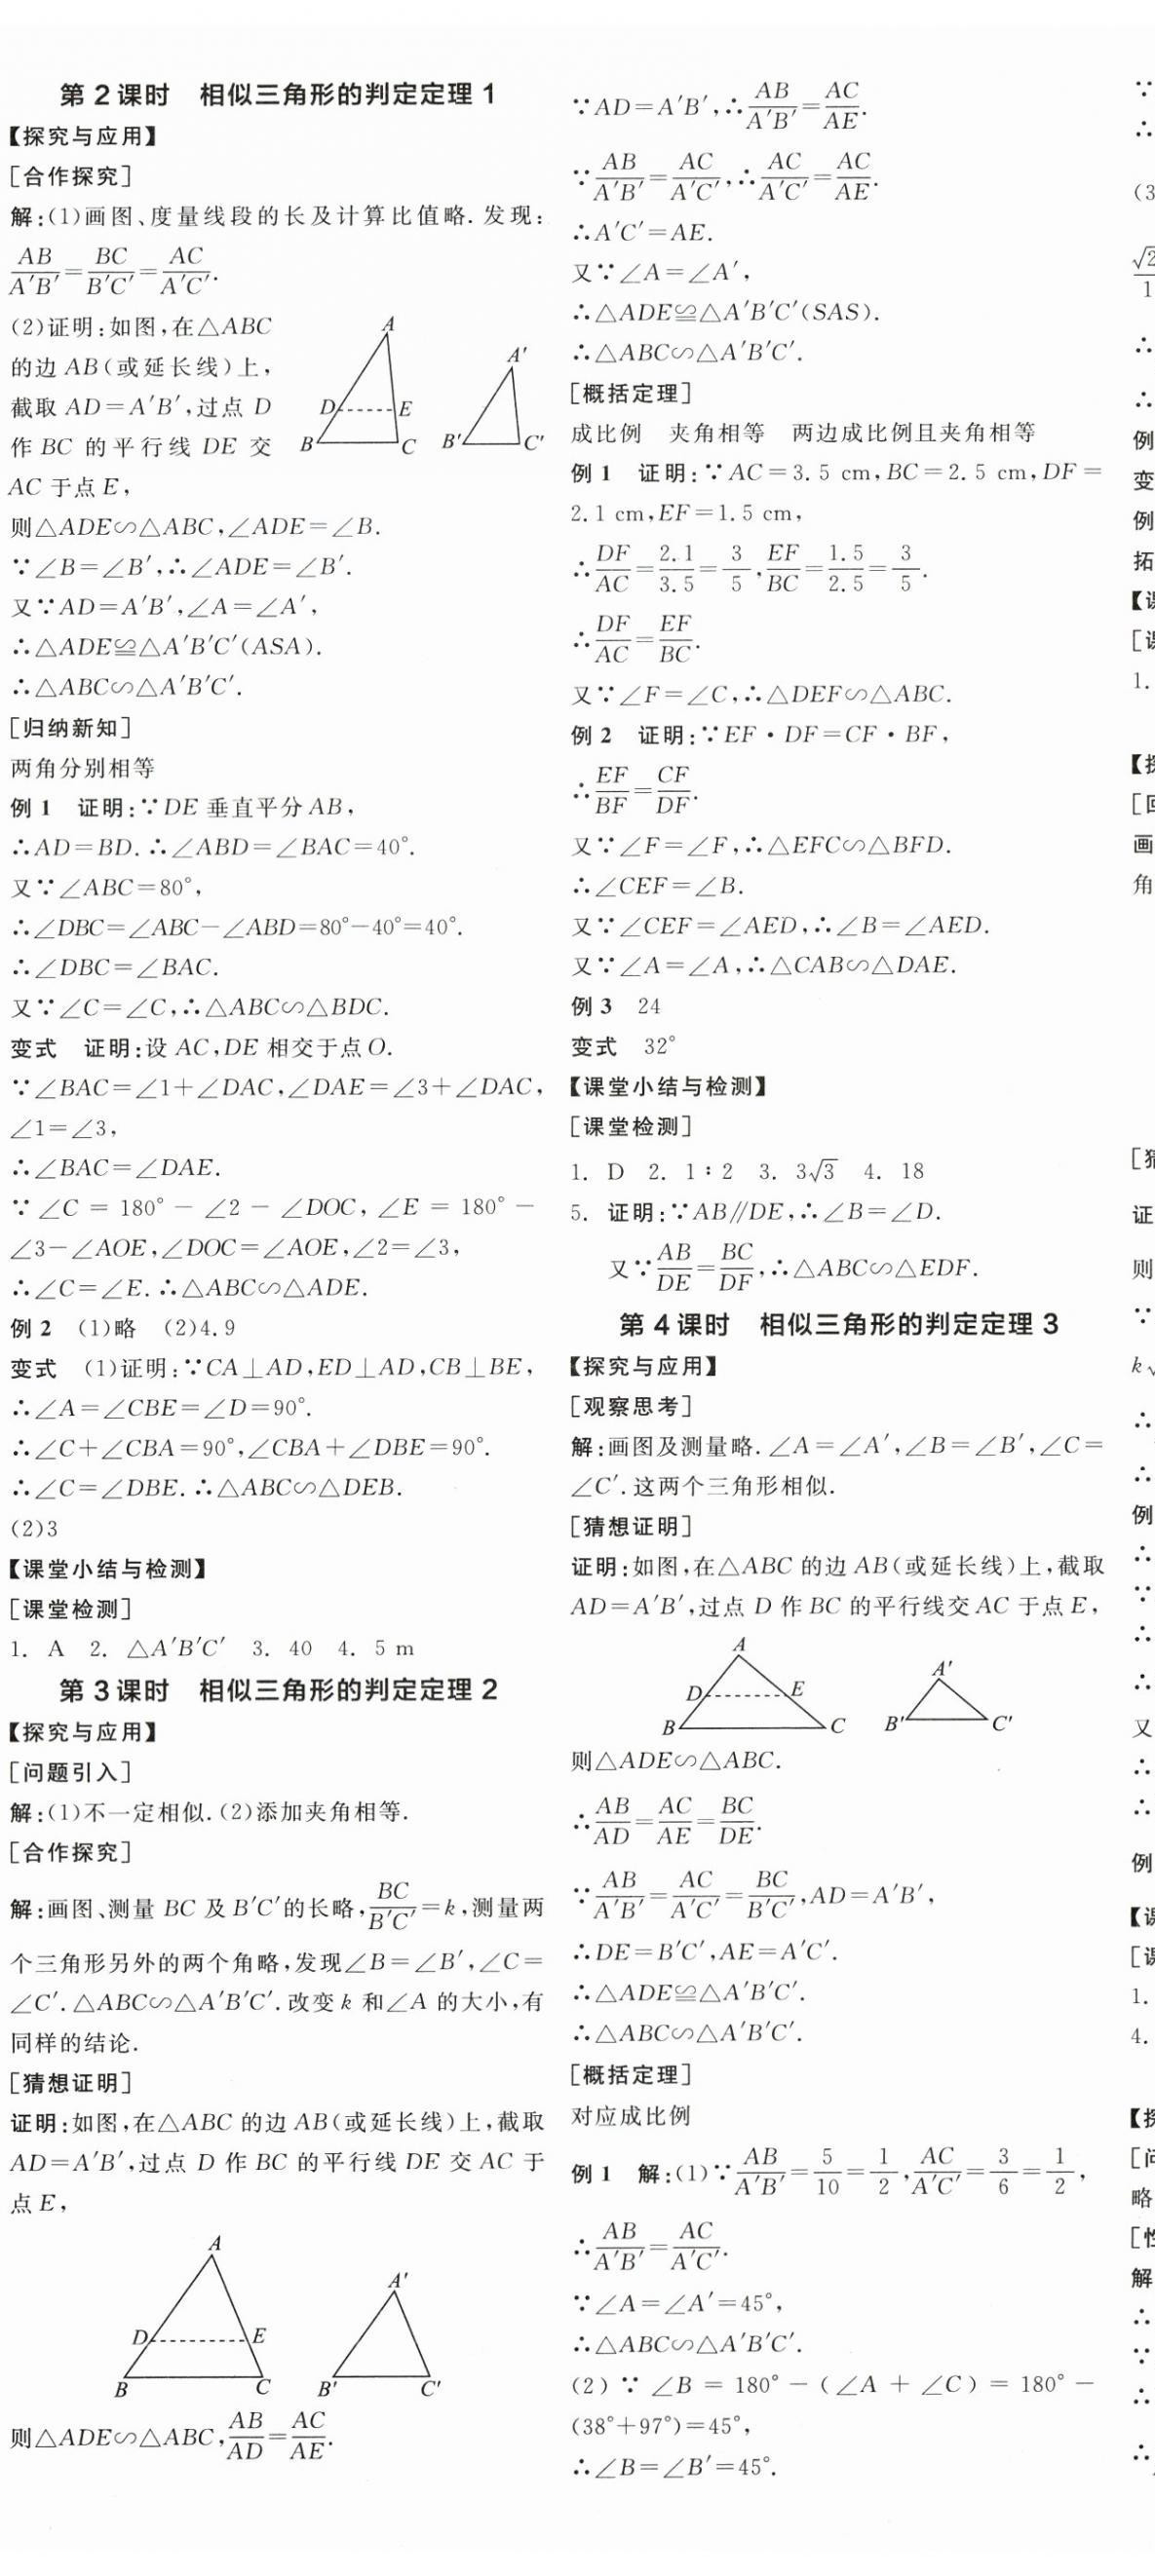 第2课时 相似三角形的判定定理1
【探究与应用】
[合作探究]
解:(1)画图、度量线段的长及计算比值略.发现:
AB/A′B′=BC/B′C′=AC/A′C′.
(2)证明:如图,在△ABC
的边AB(或延长线)上,
截取AD=A′B′,过点D
作BC的平行线DE交
AC于点E,
A
D
E
B
C
A′
B′
C′
则△ADE∽△ABC,∠ADE=∠B.
∵∠B=∠B′,∴∠ADE=∠B′.
又∵AD=A′B′,∠A=∠A′,
∴△ADE≌△A′B′C′(ASA).
∴△ABC∽△A′B′C′.
[归纳新知]
两角分别相等
例1 证明:∵DE垂直平分AB,
∴AD=BD.∴∠ABD=∠BAC=40°.
又∵∠ABC=80°,
∴∠DBC=∠ABC-∠ABD=80°-40°=40°.
∴∠DBC=∠BAC.
又∵∠C=∠C,∴△ABC∽△BDC.
变式 证明:设AC,DE相交于点O.
∵∠BAC=∠1+∠DAC,∠DAE=∠3+∠DAC,
∠1=∠3,
∴∠BAC=∠DAE.
∵∠C=180°-∠2-∠DOC,∠E=180°-
∠3-∠AOE,∠DOC=∠AOE,∠2=∠3,
∴∠C=∠E.∴△ABC∽△ADE.
例2 (1)略 (2)4.9
变式 (1)证明:∵CA⊥AD,ED⊥AD,CB⊥BE,
∴∠A=∠CBE=∠D=90°.
∴∠C+∠CBA=90°,∠CBA+∠DBE=90°.
∴∠C=∠DBE.∴△ABC∽△DEB.
(2)3
【课堂小结与检测】
[课堂检测]
1. A 2. △A′B′C′ 3. 40 4. 5 m
第3课时 相似三角形的判定定理2
【探究与应用】
[问题引入]
解:(1)不一定相似.(2)添加夹角相等.
[合作探究]
解:画图、测量BC及B′C′的长略,BC/B′C′=k,测量两
个三角形另外的两个角略,发现∠B=∠B′,∠C=
∠C′.△ABC∽△A′B′C′.改变k和∠A的大小,有
同样的结论.
[猜想证明]
证明:如图,在△ABC的边AB(或延长线)上,截取
AD=A′B′,过点D作BC的平行线DE交AC于
点E,
A
D
E
B
C
A′
B′
C′
则△ADE∽△ABC,AB/AD=AC/AE.
∵AD=A′B′,∴AB/A′B′=AC/AE.
∵AB/A′B′=AC/A′C′,∴AC/A′C′=AC/AE.
∴A′C′=AE.
又∵∠A=∠A′,
∴△ADE≌△A′B′C′(SAS).
∴△ABC∽△A′B′C′.
[概括定理]
成比例 夹角相等 两边成比例且夹角相等
例1 证明:∵AC=3.5 cm,BC=2.5 cm,DF=
2.1 cm,EF=1.5 cm,
∴DF/AC=2.1/3.5=3/5,EF/BC=1.5/2.5=3/5.
∴DF/AC=EF/BC.
又∵∠F=∠C,∴△DEF∽△ABC.
例2 证明:∵EF·DF=CF·BF,
∴EF/BF=CF/DF.
又∵∠F=∠F,∴△EFC∽△BFD.
∴∠CEF=∠B.
又∵∠CEF=∠AED,∴∠B=∠AED.
又∵∠A=∠A,∴△CAB∽△DAE.
例3 24
变式 32°
【课堂小结与检测】
[课堂检测]
1. D 2. 1∶2 3. 3√3 4. 18
5. 证明:∵AB∥DE,∴∠B=∠D.
又∵AB/DE=BC/DF,∴△ABC∽△EDF.
第4课时 相似三角形的判定定理3
【探究与应用】
[观察思考]
解:画图及测量略.∠A=∠A′,∠B=∠B′,∠C=
∠C′.这两个三角形相似.
[猜想证明]
证明:如图,在△ABC的边AB(或延长线)上,截取
AD=A′B′,过点D作BC的平行线交AC于点E,
A
D
E
B
C
A′
B′
C′
则△ADE∽△ABC.
∴AB/AD=AC/AE=BC/DE.
∵AB/A′B′=AC/A′C′=BC/B′C′,AD=A′B′,
∴DE=B′C′,AE=A′C′.
∴△ADE≌△A′B′C′.
∴△ABC∽△A′B′C′.
[概括定理]
对应成比例
例1 解:(1)∵AB/A′B′=5/10=1/2,AC/A′C′=3/6=1/2,
∴AB/A′B′=AC/A′C′.
∵∠A=∠A′=45°,
∴△ABC∽△A′B′C′.
(2)∵∠B=180°-(∠A+∠C)=180°-
(38°+97°)=45°,
∴∠B=∠B′=45°.